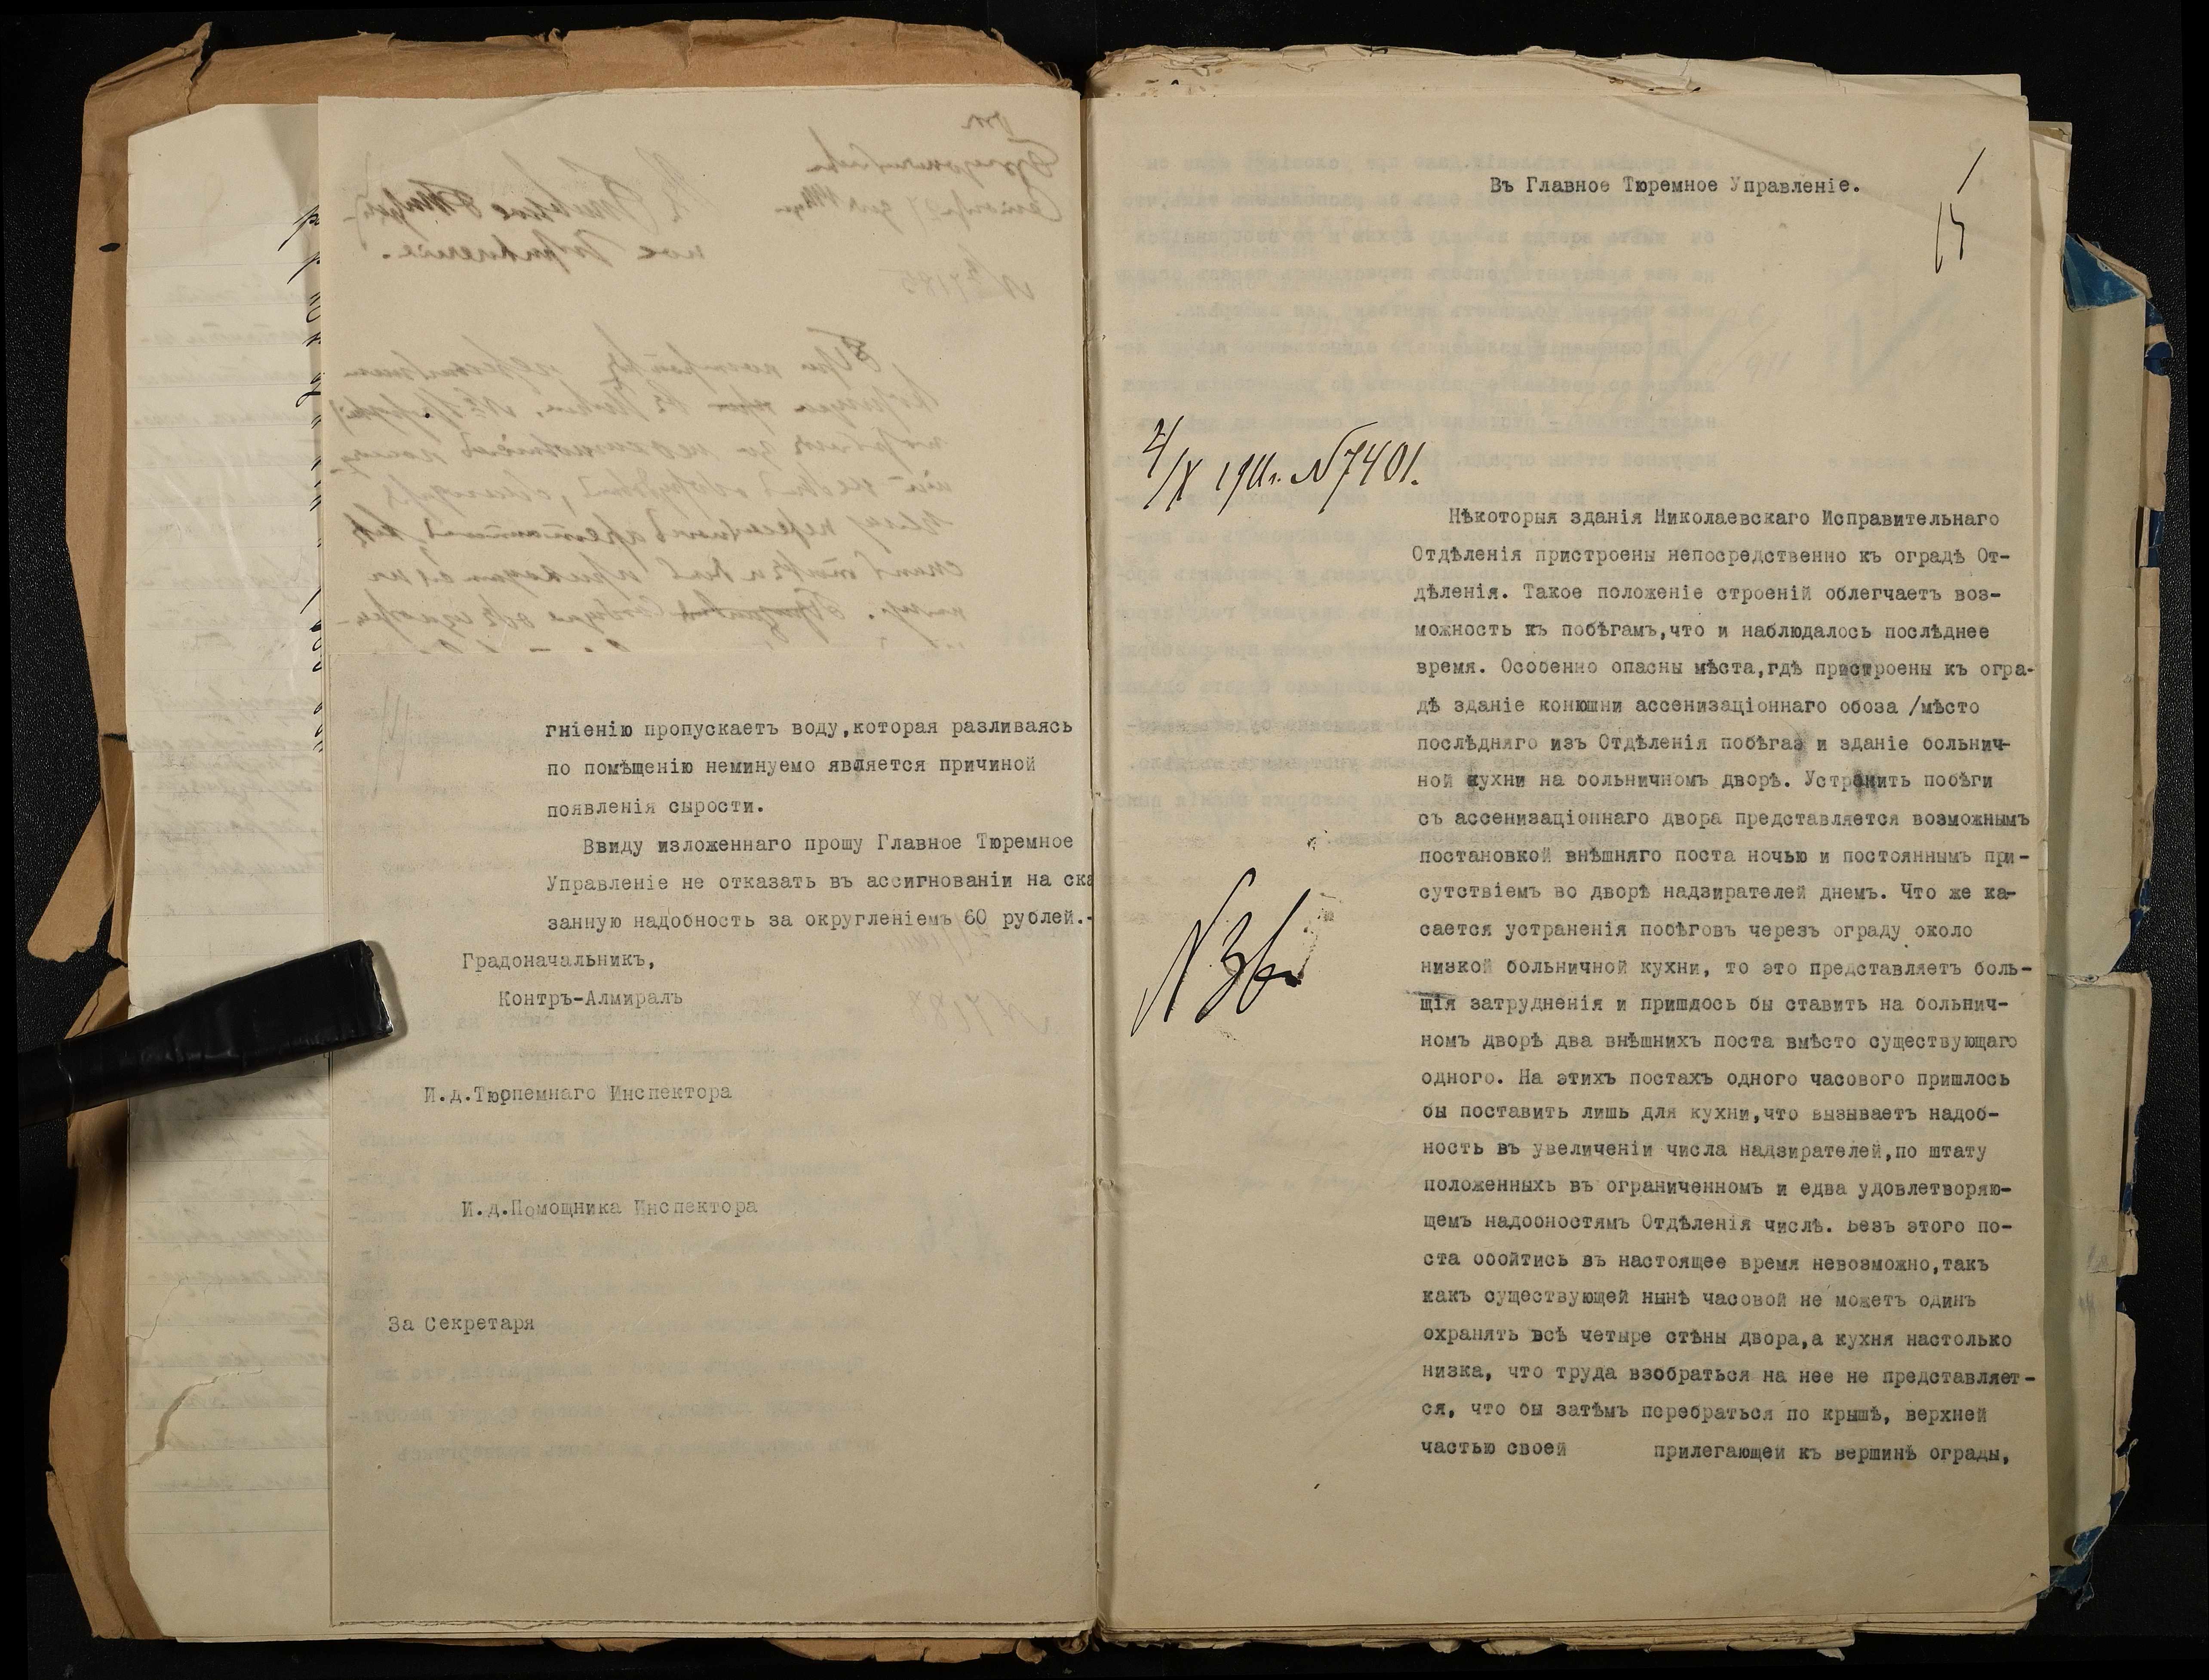 гніенію пропускаетъ воду,которая разливаясь
по помѣщенію неминуемо является причиной
появленія сырости.
Ввиду изложеннаго прошу Главное Тюремное
Управленіе не отказать въ ассигнованіи на ска
занную надобность за округленіемъ 60 рублей.-
Градоначальникъ,
Контръ-Алмиралъ
И.д.Тюрпемнаго Инспектора
И.д.Помощника Инспектора
За Секретаря
15
Въ Главное Тюремное Управленіе.
4/IX 1911г. №7401.
Нѣкоторыя зданія Николаевскаго Исправительнаго
Отдѣленія пристроены непосредственно къ оградѣ От-
дѣленія. Такое положеніе строеній облегчаетъ воз-
можность къ побѣгамъ,что и наблюдалось послѣднее
время. Особенно опасны мѣста,гдѣ пристроены къ огра-
дѣ зданіе конюшни ассенизаціоннаго обоза /мѣсто
послѣдняго изъ Отдѣленія побѣга/ и зданіе больнич-
ной кухни на больничномъ дворѣ. Устранить побѣги
съ ассенизаціоннаго двора представляется возможнымъ
постановкой внѣшняго поста ночью и постояннымъ при-
сутствіемъ во дворѣ надзирателей днемъ. Что же ка-
сается устраненія побѣговъ черезъ ограду около
низкой больничной кухни, то это представляетъ боль-
щія затрудненія и пришлось бы ставить на больнич-
номъ дворѣ два внѣшнихъ поста вмѣсто существующаго
одного. На этихъ постахъ одного часового пришлось
бы поставить лишь для кухни,что вызываетъ надоб-
ность въ увеличеніи числа надзирателей,по штату
положенныхъ въ ограниченномъ и едва удовлетворяю-
щемъ надобностямъ Отдѣленія числѣ. Безъ этого по-
ста обойтись въ настоящее время невозможно,такъ
какъ существующей нынѣ часовой не можетъ одинъ
охранять всѣ четыре стѣны двора,а кухня настолько
низка, что труда взобраться на нее не представляет-
ся, что бы затѣмъ перебраться по крышѣ, верхней
частью своей прилегающей къ вершинѣ ограды,